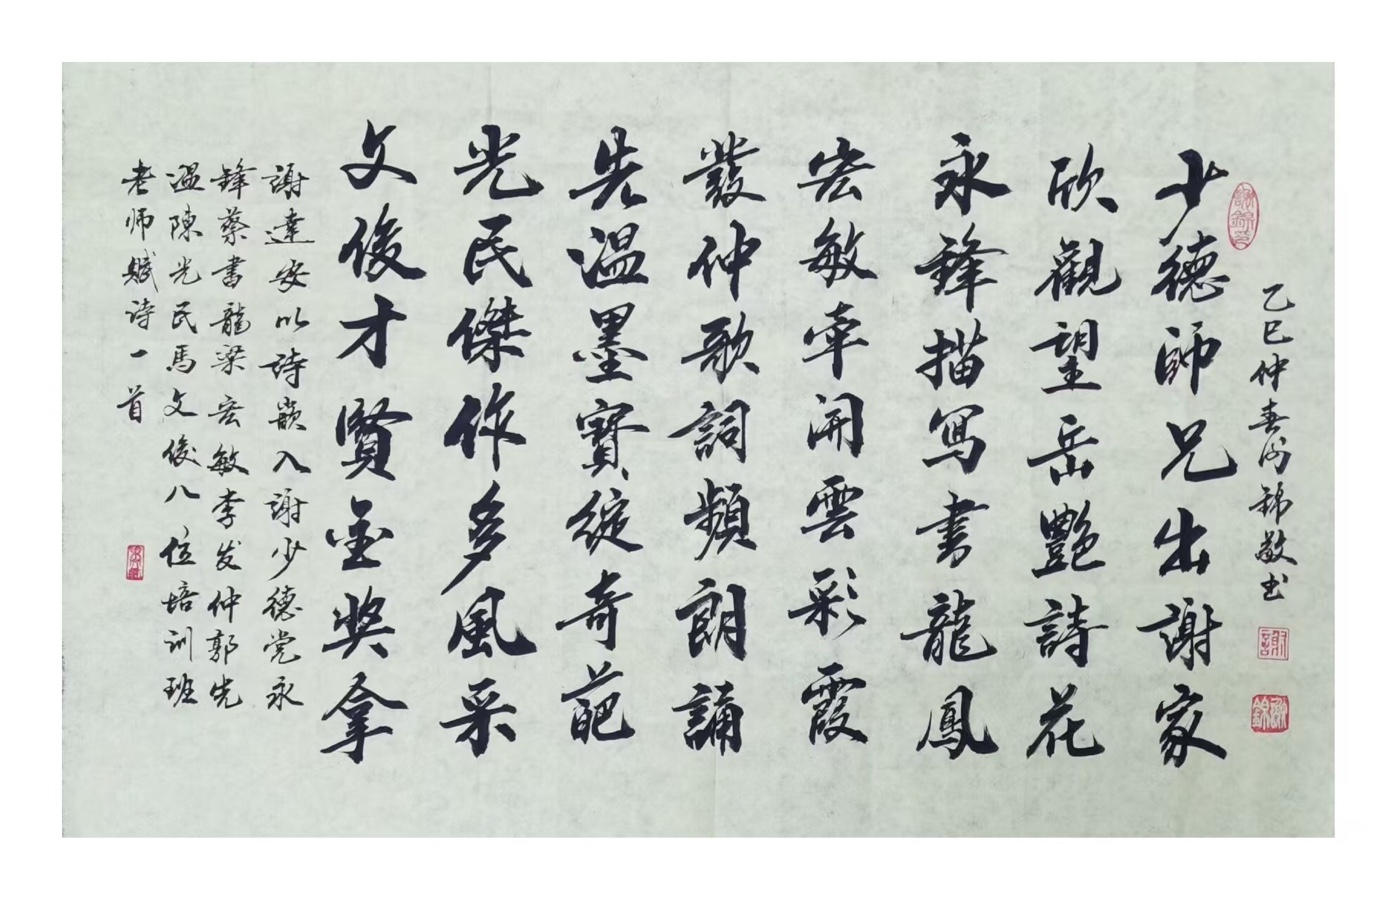 乙巳仲春谢錦敬书
少德師兄出謝家
欣觀望岳艷詩花
永鋒描寫書龍鳳
宏敏牽開雲彩霞
發仲歌詞頻朗誦
先温墨寶綻奇葩
光民傑作多風采
文俊才賢金奖拿
謝達安以詩嵌入謝少德党永
鋒蔡書龍梁宏敏李发仲郭先
温陳光民馬文俊八位培训班
老师赋诗一首
謝